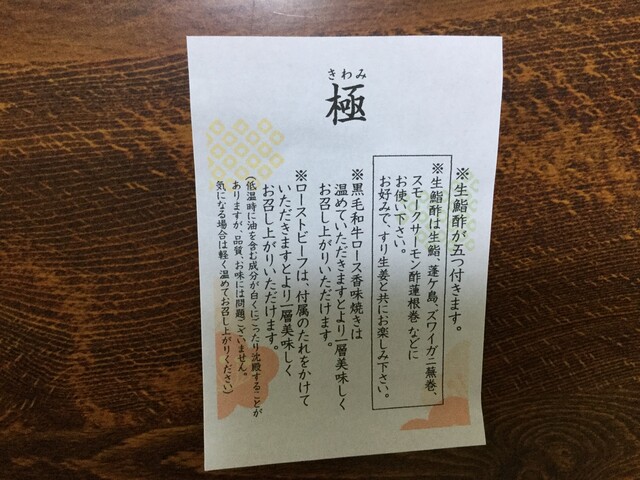 きわみ
極
※生鮨酢が五つ付きます。
※生鮨酢は生鮨、蓬ケ島、ズワイガニ蕪巻、
スモークサーモン酢蓮根巻 などに
お使い下さい。
お好みで、すり生姜と共にお楽しみ下さい。
※黒毛和牛ロース香味焼きは
温めていただきますとより一層美味しく
お召し上がりいただけます。
※ローストビーフは、付属のたれをかけて
いただきますとより一層美味しく
お召し上がりいただけます。
(低温時に油を含む成分が白くにごったり沈殿することが
ありますが、品質、お味には問題ございません。
気になる場合は軽く温めてお召し上がりください)